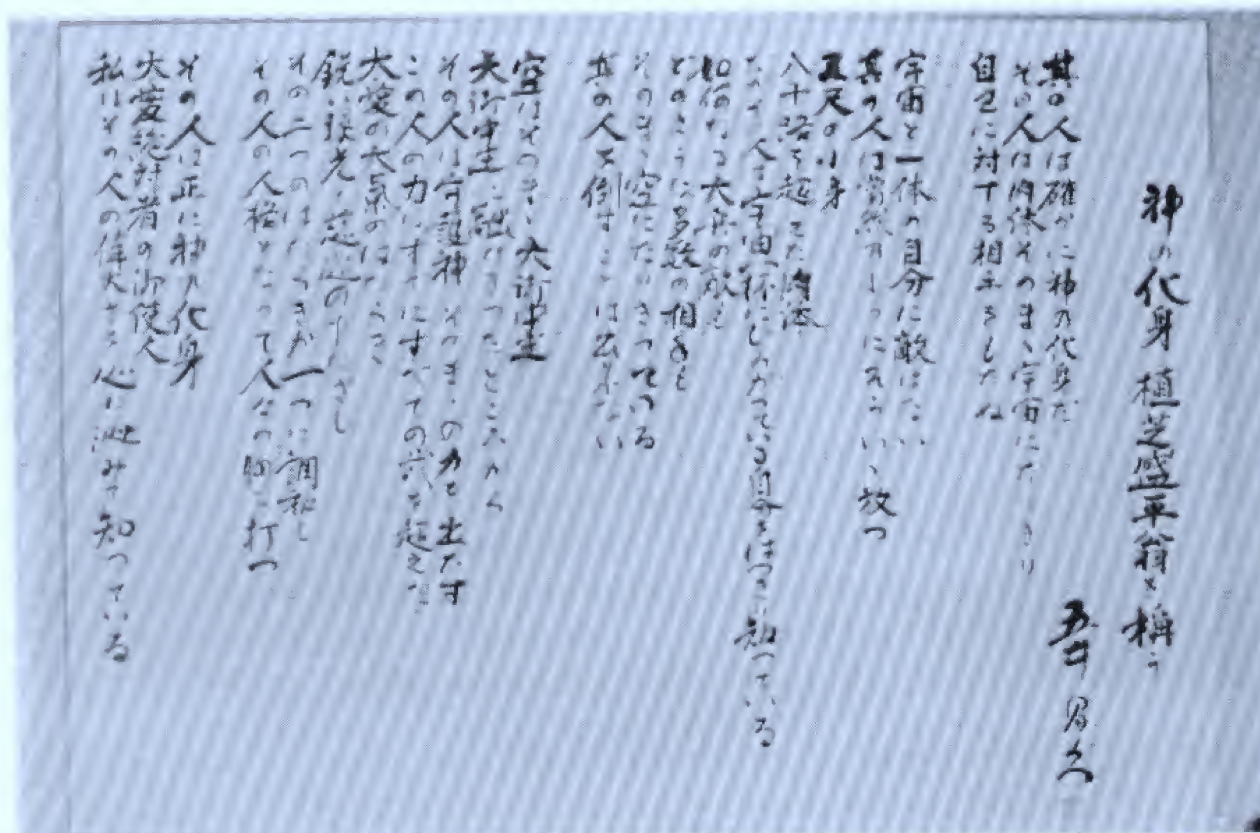 神の化身 植芝盛平翁を稱う
五井昌久
其の人は確かに神の化身だ
その人は肉体そのまゝ宇宙になりきり
自己に対する相手をもたぬ
宇宙と一体の自分に敵はない
其の人は当然のように云い放つ
五尺の小身
八十路を超えた肉体
だが 人は宇宙一杯にしかっている自分をはっきり知っている
如何なる大兵の敵も
どのような多数の相手も
そのまゝ空になりきっている
其の人を倒すことは出来ない
空はそのまゝ天御中主
天御中主に融けきったところから
その人は守護神そのまゝの力を出だす
この人の力はすでにすべての武を超えた
大愛の大気のはたらき
鋭い眼光と慈愛のまなざし
その二つのはたらきが一つに調和し
その人の人格となって人々の胸を打つ
その人は正に神の化身
大愛絶対者の御使人
私はその人の偉大さを心に沁みて知っている